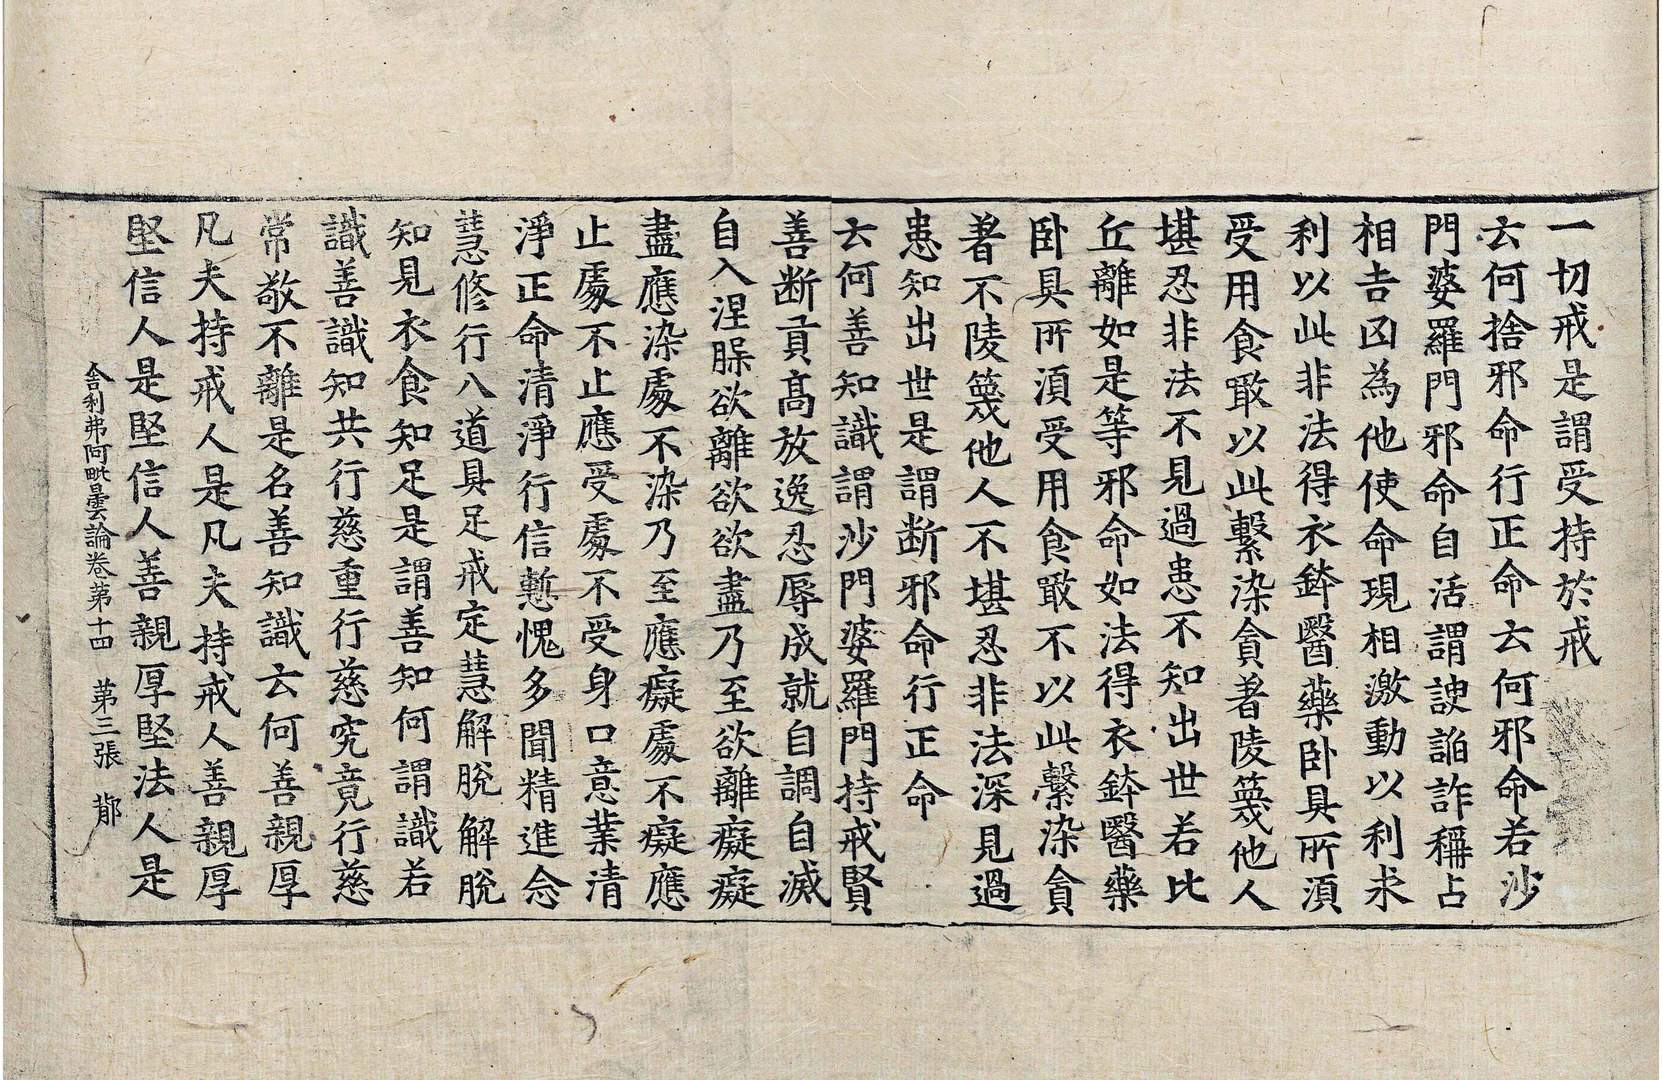 一切戒是謂受持於戒
云何捨邪命行正命云何邪命若沙
門婆羅門邪命自活謂諛諂詐稱占
相吉凶為他使命現相激動以利求
利以此非法得衣鉢醫藥卧具所湏
受用食噉以此繫染貪著陵篾他人
堪忍非法不見過患不知出世若比
丘離如是等邪命如法得衣鉢醫藥
卧具所湏受用食噉不以此繫染貪
著不陵篾他人不堪忍非法深見過
患知出世是謂断邪命行正命
云何善知識謂沙門婆羅門持戒賢
善断貢高放逸忍辱成就自調自滅
自入涅槃欲離欲欲盡乃至欲離癡癡
盡應染處不染乃至應癡處不癡應
止處不止應受處不受身口意業清
淨正命清淨行信慙愧多聞精進念
慧修行八道具足戒定慧解脫解脫
知見衣食知足是謂善知何謂識若
識善識知共行慈重行慈究竟行慈
常敬不離是名善知識云何善親厚
凡夫持戒人是凡夫持戒人善親厚
堅信人是堅信人善親厚堅法人是
舍利弗阿毗曇論卷第十四 第三張